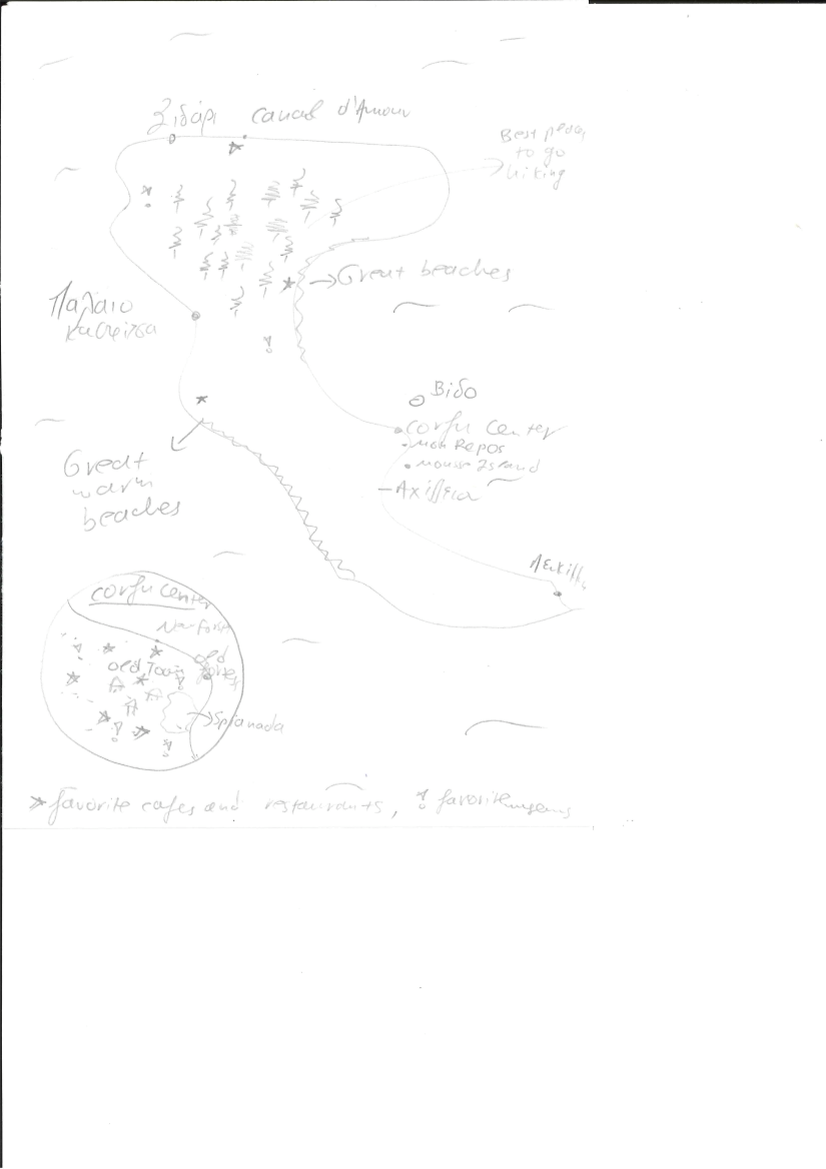 Σιδάρι canal d'Amour
Best
to go
hiking
Great beaches
Παλαιο
καστρίτσα
Βίδο
Corfu Center
Mon Repos
mouse Island
Αχίλλεια
Great
warm
beaches
Λευκίμ
Corfu Center
New fort
old
Old Town
Spianada
favorite cafes and restaurants, favorite